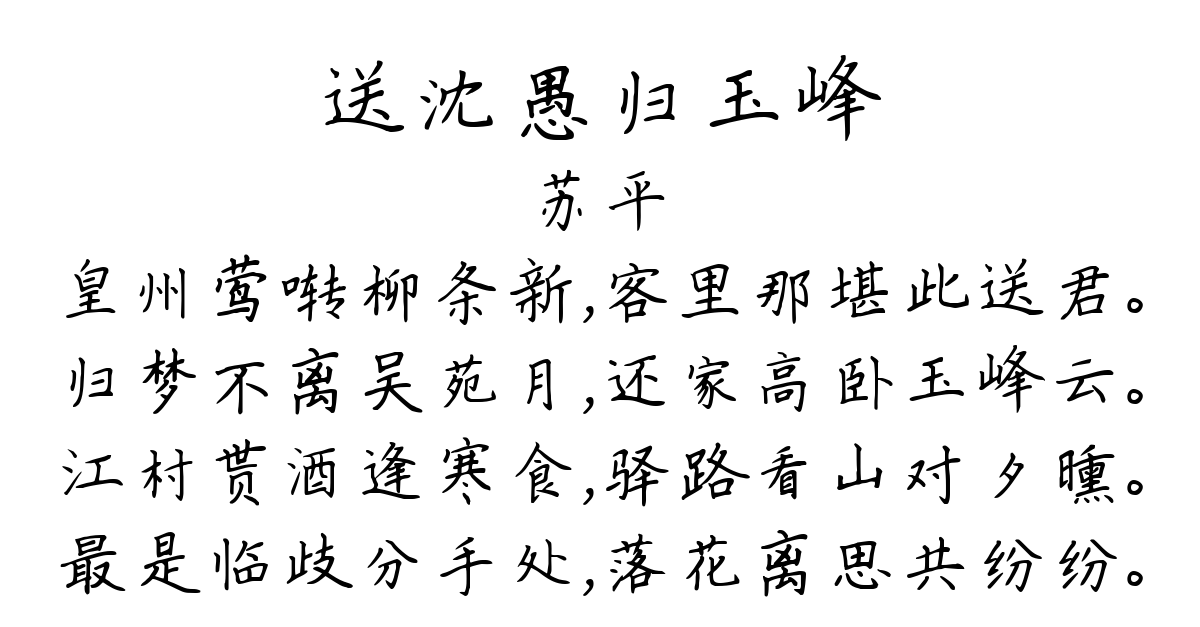 送沈愚归玉峰
苏平
皇州莺啭柳条新,客里那堪此送君。
归梦不离吴苑月,还家高卧玉峰云。
江村贳酒逢寒食,驿路看山对夕曛。
最是临歧分手处,落花离思共纷纷。